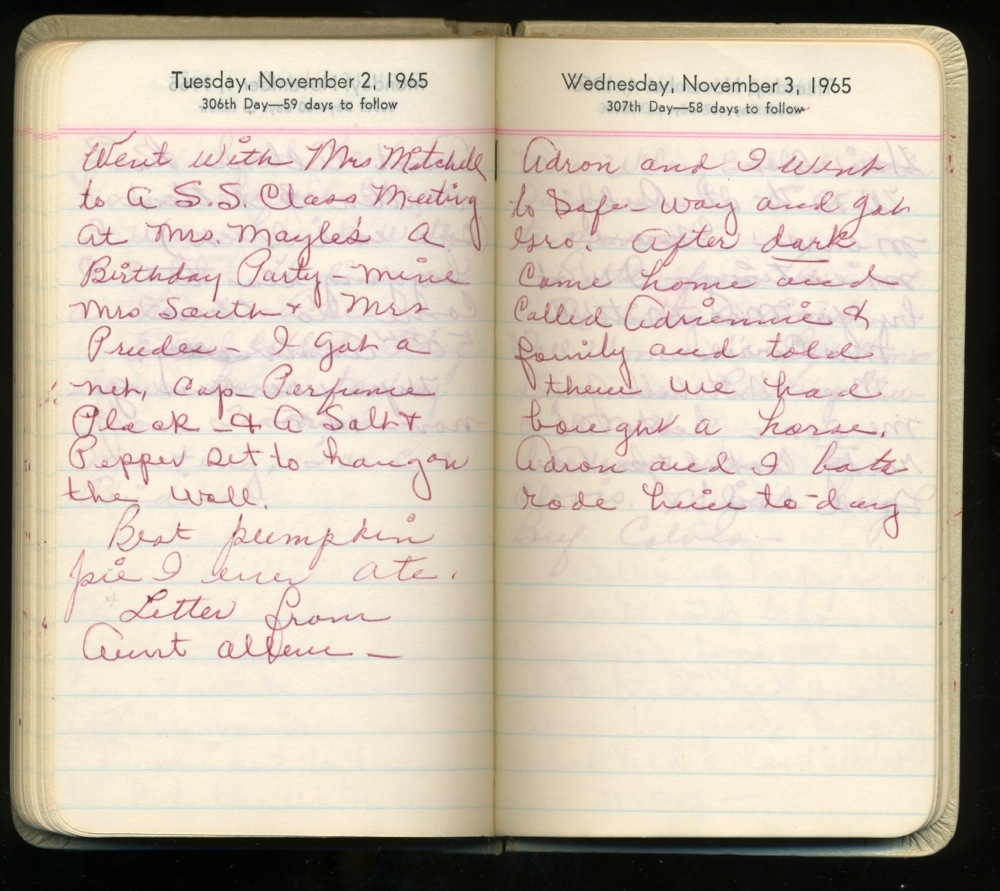 Tuesday, November 2, 1965
306th Day—59 days to follow
Went with Mrs Mitchell
to a S.S. Class Meeting
at Mrs. Mayle's A
Birthday Party – mine
Mrs South & Mrs
Prudes – I got a
net, Cap – Perfume
Plack – & a Salt &
Pepper set to hang on
the wall.
Best pumpkin
pie I ever ate.
Letter from
Aunt –
Wednesday, November 3, 1965
307th Day—58 days to follow
Adron and I went
to Safe-way and got
Gro. After dark
Came home and
Called Adriennie &
family and told
them we had
bought a horse.
Adron and I both
rode him to-day